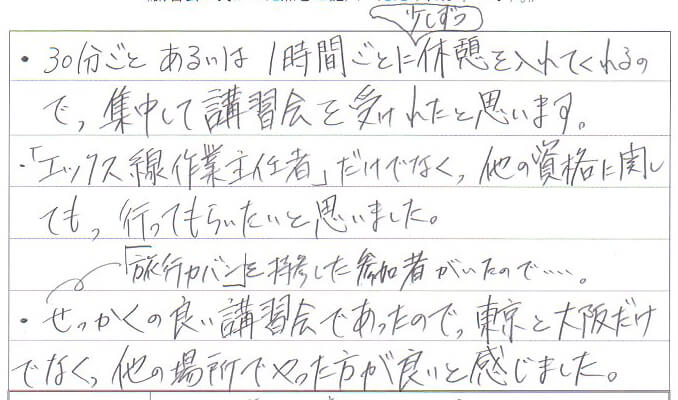 少しずつ
・30分ごと あるいは 1時間ごとに休憩を入れてくれるの
で、集中して講習会を受けれたと思います。
・「エックス線作業主任者」だけでなく、他の資格に関し
ても、行ってもらいたいと思いました。
「旅行カバン」を持参した参加者がいたので……。
・せっかくの良い講習会であったので、東京と大阪だけ
でなく、他の場所でやった方が良いと感じました。